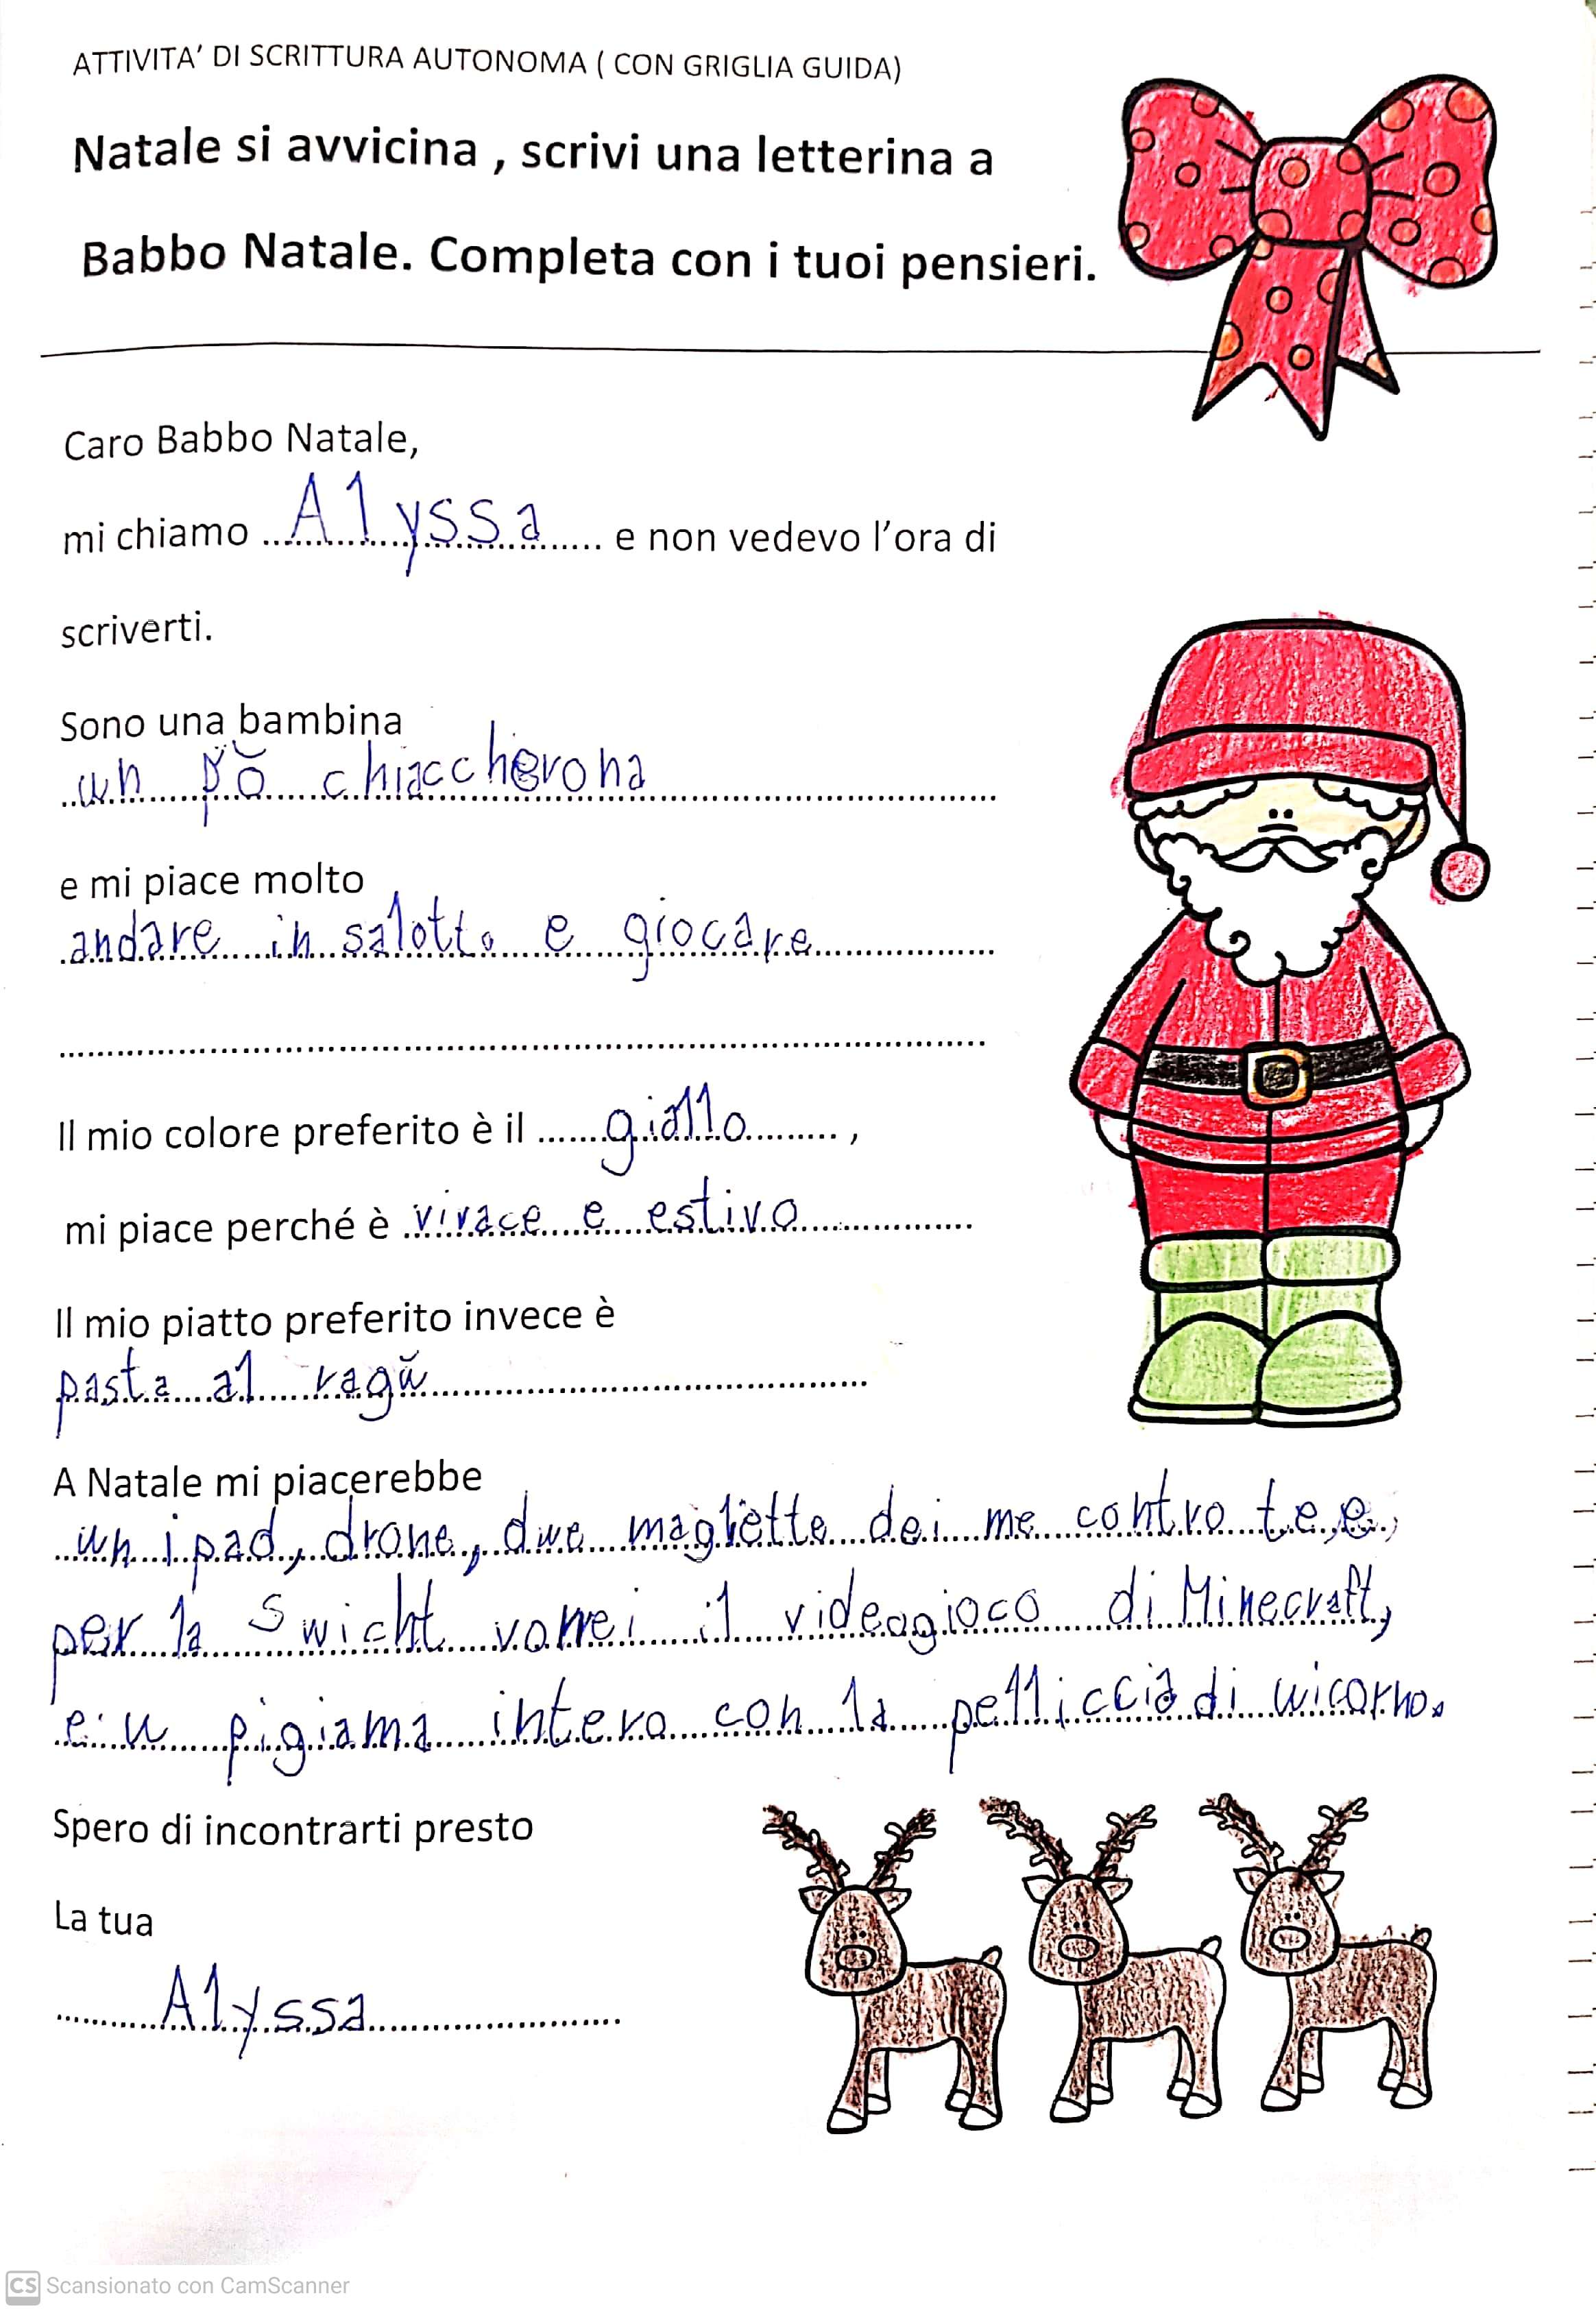 ATTIVITA’ DI SCRITTURA AUTONOMA ( CON GRIGLIA GUIDA)
Natale si avvicina , scrivi una letterina a
Babbo Natale. Completa con i tuoi pensieri.
Caro Babbo Natale,
mi chiamo Alyssa e non vedevo l’ora di
scriverti.
Sono una bambina
un pŏ chiaccherona
e mi piace molto
andare in salotto e giocare
Il mio colore preferito è il giallo ,
mi piace perché è vivace e estivo
Il mio piatto preferito invece è
pasta al ragŭ
A Natale mi piacerebbe
un ipad, drone, due magliette dei me contro te, e,
per la Swicht vorrei il videogioco di Minecraft,
e u pigiama intero con la pelliccia di uicorno.
Spero di incontrarti presto
La tua
Alyssa
CS Scansionato con CamScanner